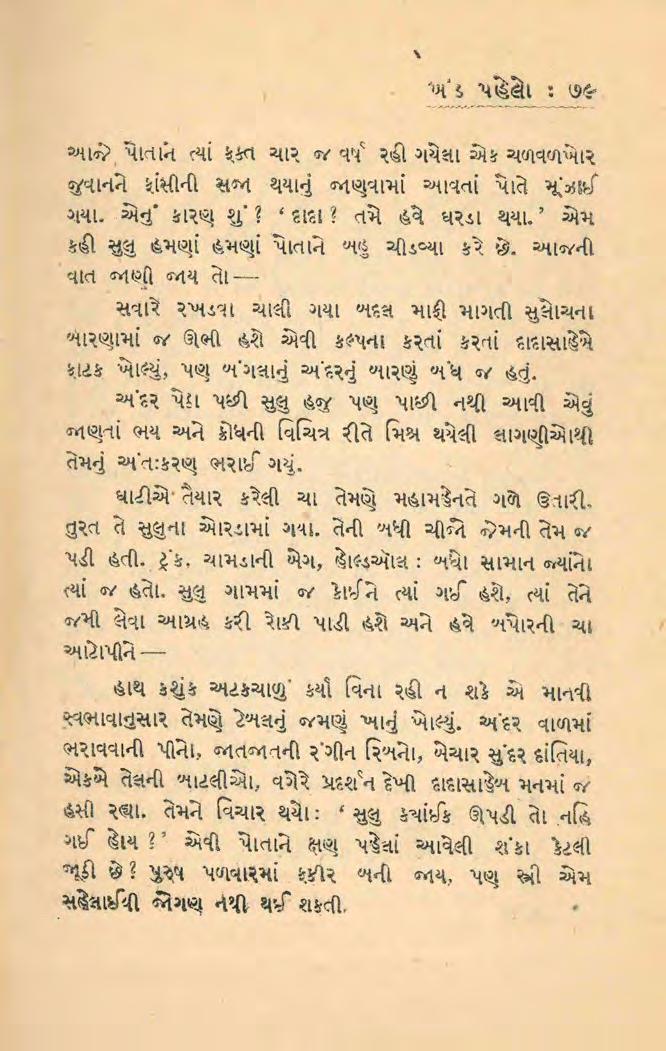 ખંડ પહેલો : ૭૯
આજે પોતાને ત્યાં ફક્ત ચાર જ વર્ષ રહી ગયેલા એક ચળવળખોર
જુવાનને ફાંસીની સજા થયાનું જાણવામાં આવતાં પોતે મૂંઝાઈ
ગયા. એનું કારણ શું ? ‘ દાદા ? તમે હવે ઘરડા થયા.’ એમ
કહી સુલુ હમણાં હમણાં પોતાને બહુ ચીડવ્યા કરે છે. આજની
વાત જાણી જાય તો —
સવારે રખડવા ચાલી ગયા બદલ માફી માગતી સુલોચના
બારણામાં જ ઊભી હશે એવી કલ્પના કરતાં કરતાં દાદાસાહેબે
ફાટક ખોલ્યું, પણ બંગલાનું અંદરનું બારણું બંધ જ હતું.
અંદર પેઠા પછી સુલુ હજુ પણ પાછી નથી આવી એવું
જાણતાં ભય અને ક્રોધની વિચિત્ર રીતે મિશ્ર થયેલી લાગણીઓથી
તેમનું અંતઃકરણ ભરાઈ ગયું.
ઘાટીએ તૈયાર કરેલી ચા તેમણે મહામહેનતે ગળે ઉતારી.
તુરત તે સુલુના ઓરડામાં ગયા. તેની બધી ચીજો જેમની તેમ જ
પડી હતી. ટ્રંક, ચામડાની બેગ, હોલ્ડઑલ : બધો સામાન જ્યાંનો
ત્યાં જ હતો. સુલુ ગામમાં જ કોઈને ત્યાં ગઈ હશે, ત્યાં તેને
જમી લેવા આગ્રહ કરી રોકી પાડી હશે અને હવે બપોરની ચા
આટોપીને —
હાથ કશુંક અટકચાળું કર્યા વિના રહી ન શકે એ માનવી
સ્વભાવાનુસાર તેમણે ટેબલનું જમણું ખાનું ખોલ્યું. અંદર વાળમાં
ભરાવવાની પીનો, જાતજાતની રંગીન રિબનો, બેચાર સુંદર દાંતિયા,
એકબે તેલની બાટલીઓ, વગેરે પ્રદર્શન દેખી દાદાસાહેબ મનમાં જ
હસી રહ્યા. તેમને વિચાર થયો : ‘ સુલુ ક્યાંઈક ઊપડી તો નહિ
ગઈ હોય ?’ એવી પોતાને ક્ષણ પહેલાં આવેલી શંકા કેટલી
જૂઠી છે ? પુરુષ પળવારમાં ફકીર બની જાય, પણ સ્ત્રી એમ
સહેલાઈથી જોગણ નથી થઈ શકતી.